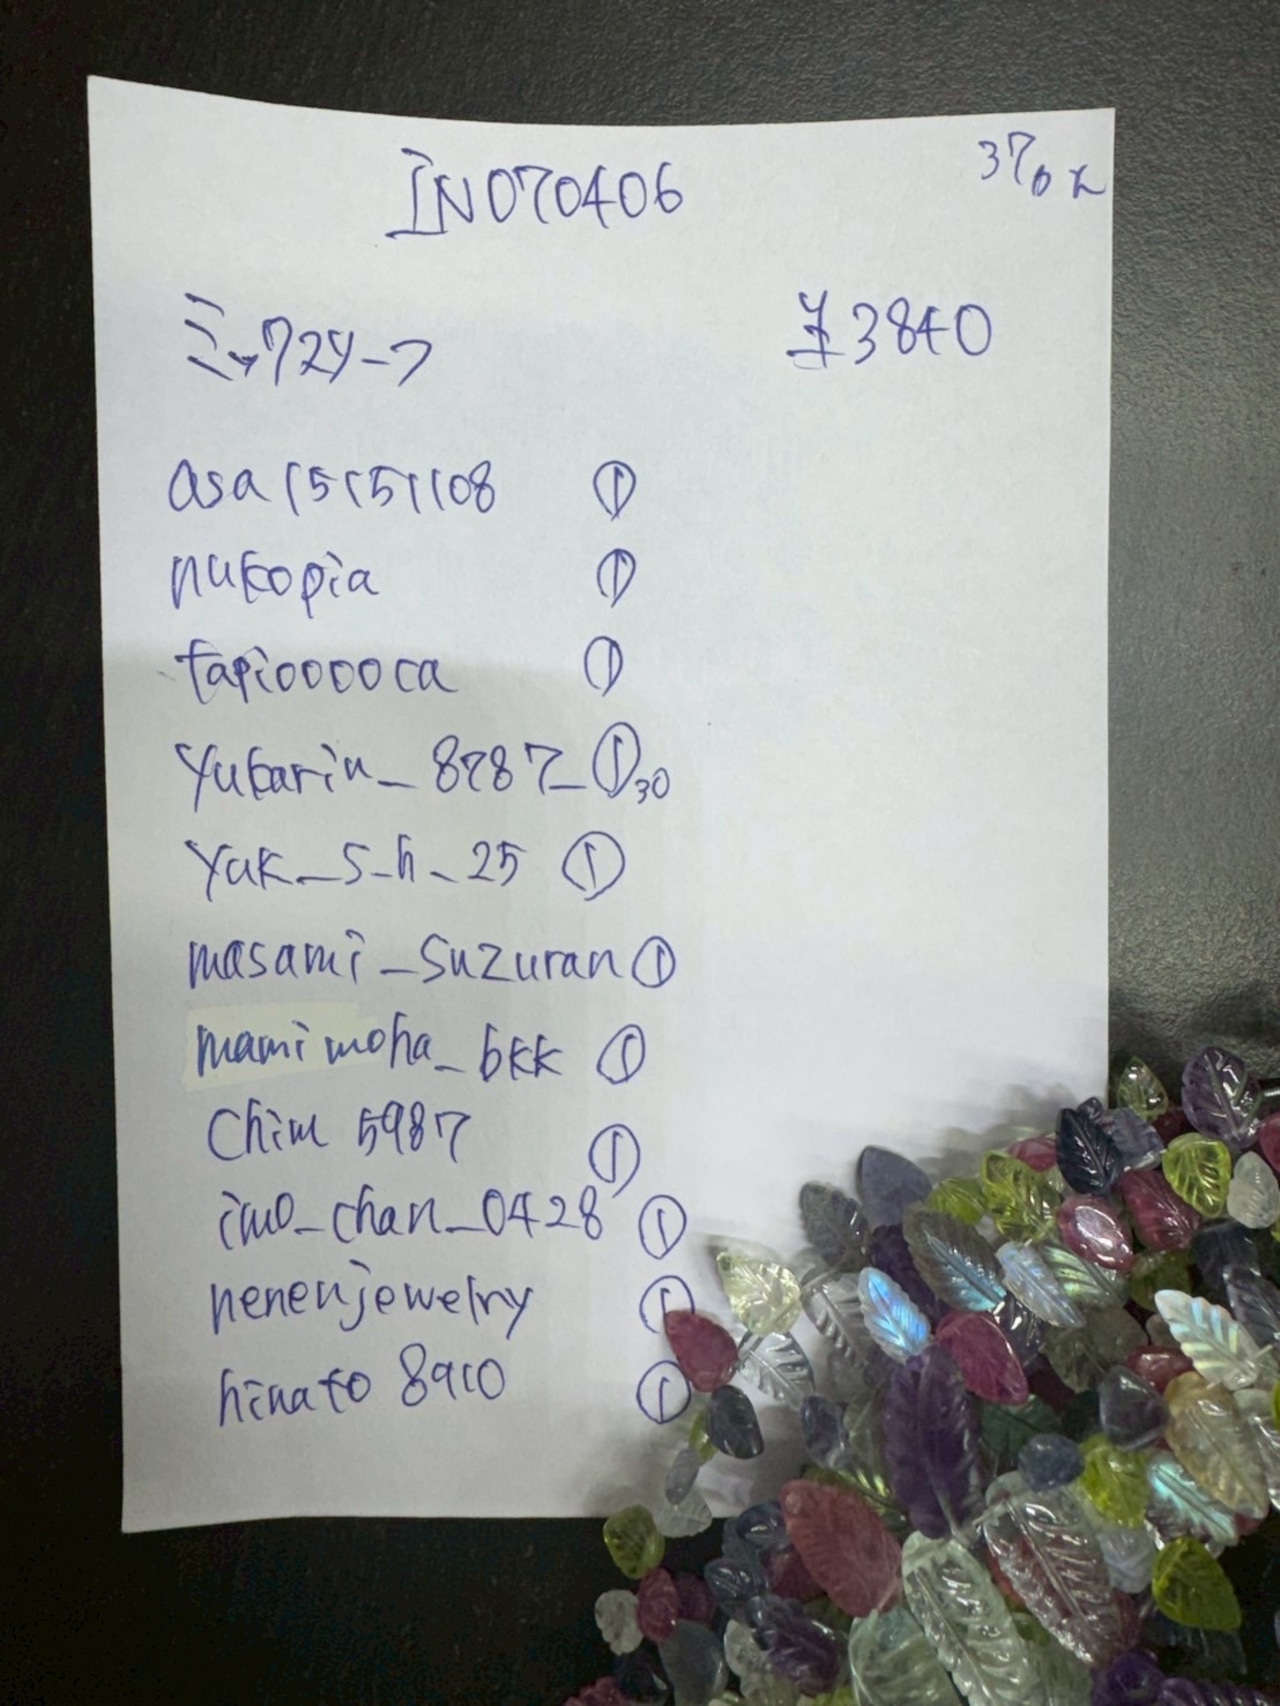 IN070406
ミックスリーフ
¥3840
asa15151108 ①
nukopia ①
tapiooooca ①
yukarin_8787_ ① 30
yuk_s_h_25 ①
masami_suzuran ①
mamimoha_bkk ①
chim5987 ①
imo_chan_0428 ①
nenenjewelry ①
hinato8910 ①